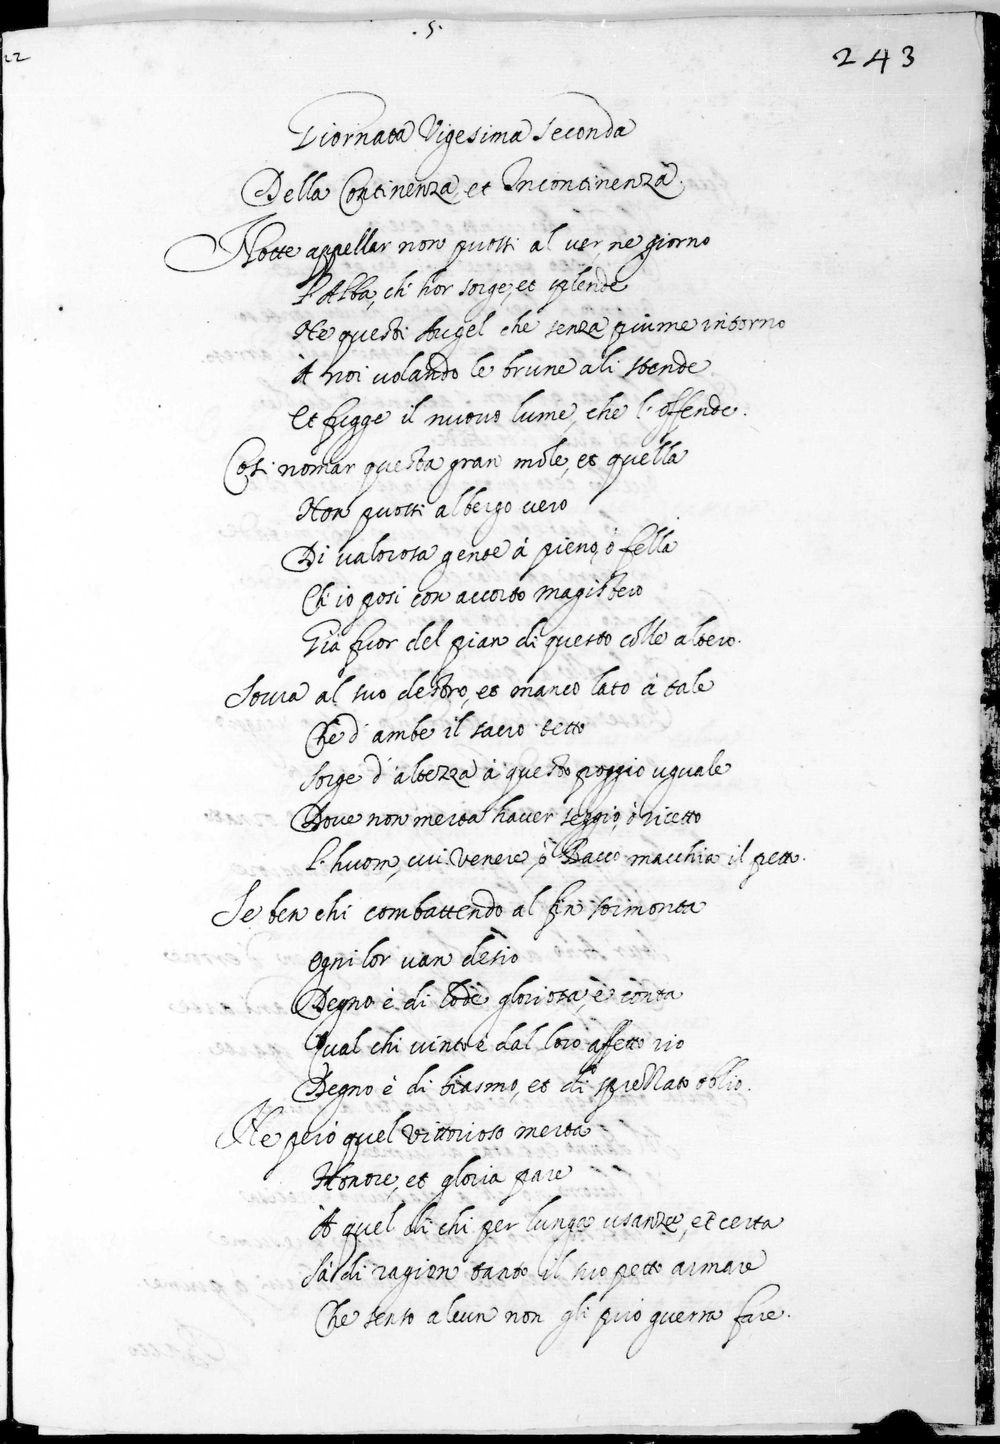 .5.
22
243
Giornata Vigesima Seconda
Della Continenza, et Incontinenza.
Notte appellar non puossi al ver, ne giorno
L'Alba, ch'hor sorge, et splende
Ne questi Augel che senza piume intorno
A noi volando le brune ali stende
Et fugge il nuovo lume, che l'offende.
Così nomar questa gran mole, et quella
Non puossi albergo vero
Di valorosa gente à pieno, ò fella
Ch'io posi con accorto magistero
Già fuor del pian di questo colle altero.
Sovra al suo destro, et manco lato à tale
Che d'ambe il sacro tetto
Sorge d'altezza à questo poggio uguale
Dove non merta haver seggio, ò ricetto
L'huom, cui Venere, ò Bacco macchia il petto.
Se ben chi combattendo al fin sormonta
Ogni lor van desio
Degno è di lode gloriosa, è conta
Qual chi vinto è dal loro affetto rio
Degno è di biasmo, et di spiettato oblio.
Ne però quel vittorioso merta
Honore, et gloria pare
A quel di chi per lunga usanza, et certa
Sà di ragion tanto il suo petto armare
Che senso alcun non gli può guerra fare.